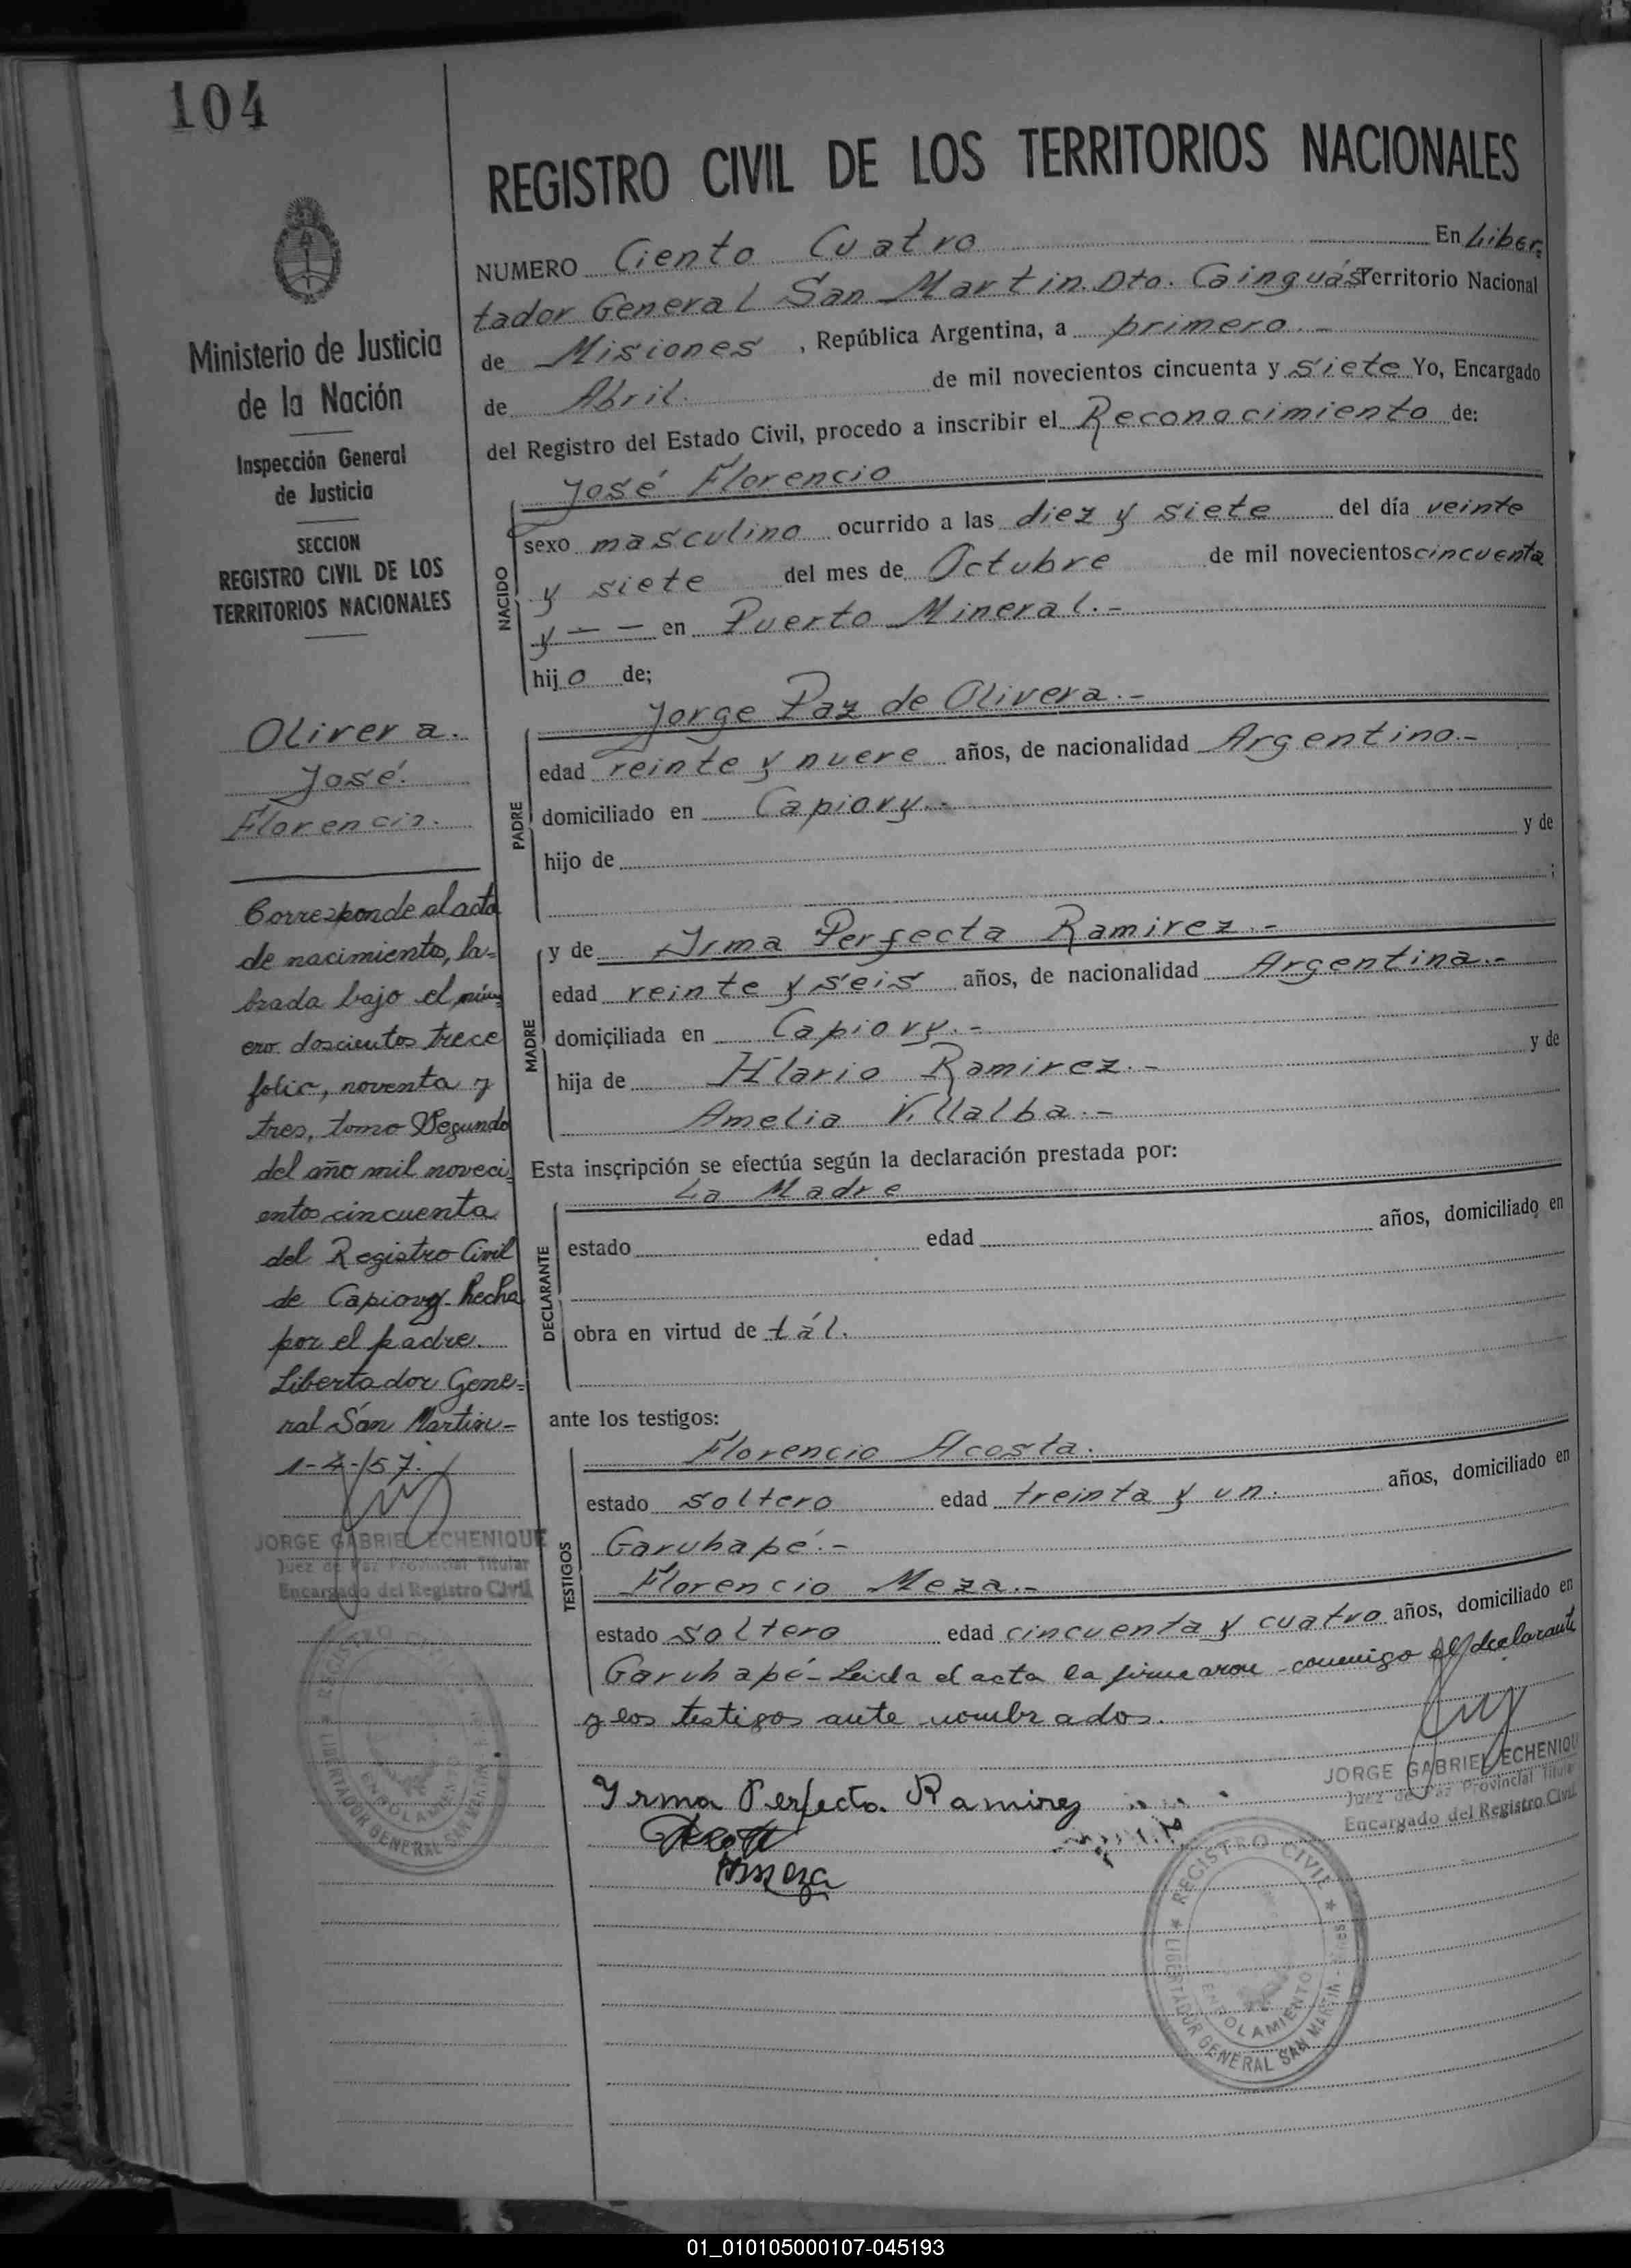 104
REGISTRO CIVIL DE LOS TERRITORIOS NACIONALES
Ministerio de Justicia
de la Nación
Inspección General
de Justicia
SECCION
REGISTRO CIVIL DE LOS
TERRITORIOS NACIONALES
Olivera.
José.
Florencio.
Corresponde al acta
de nacimiento, la-
brada bajo el núm
ero doscientos trece
folio, noventa y
tres, tomo Segundo
del año mil noveci
entos cincuenta
del Registro Civil
de Capiovy hecha
por el padre.
Libertador Gene-
ral San Martin-
1-4-/57.
JORGE GABRIEL ECHENIQUE
Juez de Paz Provincial Titular
Encargado del Registro Civil
LIBERTADOR GENERAL SAN MARTIN
ENROLAMIENTO
NUMERO Ciento Cuatro En Liber
tador General San Martin. Dto. Cainguás Territorio Nacional
de Misiones , República Argentina, a primero.-
de Abril. de mil novecientos cincuenta y siete Yo, Encargado
del Registro del Estado Civil, procedo a inscribir el Reconocimiento de:
José Florencio
NACIDO
sexo masculino ocurrido a las diez y siete del día veinte
y siete del mes de Octubre de mil novecientos cincuenta
y — — en Puerto Mineral.-
hijo de;
Jorge Paz de Olivera.-
PADRE
edad veinte y nueve años, de nacionalidad Argentino.-
domiciliado en Capiovy.-
hijo de y de
;
MADRE
y de Irma Perfecta Ramirez.-
edad veinte y seis años, de nacionalidad Argentina.-
domiciliada en Capiovy.-
hija de Hlario Ramirez.- y de
Amelia Villalba.-
Esta inscripción se efectúa según la declaración prestada por:
La Madre
DECLARANTE
estado edad años, domiciliado en
obra en virtud de tál.
ante los testigos:
Florencio Acosta.
TESTIGOS
estado soltero edad treinta y un. años, domiciliado en
Garuhapé.-
Florencio Meza.-
estado soltero edad cincuenta y cuatro años, domiciliado en
Garuhapé- Leida el acta la firmaron conmigo el declarante
y los testigos ante nombrados.
Irma Perfecta Ramirez
JORGE GABRIEL ECHENIQU
Juez de Paz Provincial Titular
Encargado del Registro Civil
REGISTRO CIVIL
ENROLAMIENTO
LIBERTADOR GENERAL SAN MARTIN
01_010105000107-045193